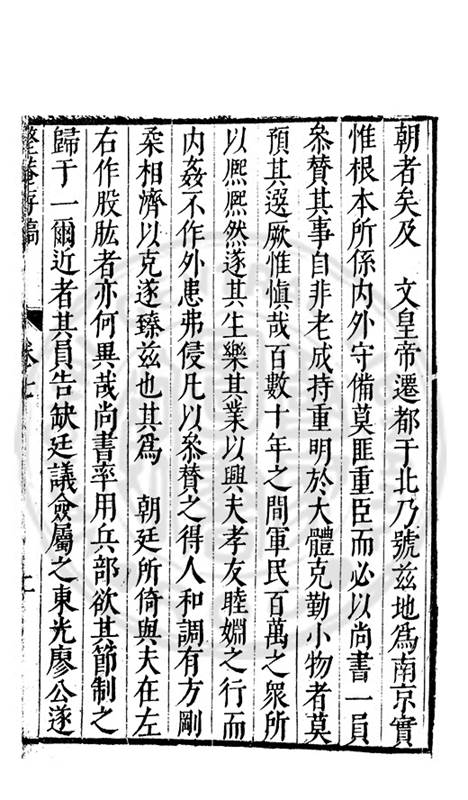 朝者矣及　文皇帝遷都于北乃號茲地為南京實
惟根本所係内外守備莫匪重臣而必以尚書一員
叅賛其事自非老成持重明於大體克勤小物者莫
預其選厥惟慎哉百數十年之間軍民百萬之衆所
以熈熈然遂其生樂其業以興夫孝友睦婣之行而
内姦不作外患弗侵凡以叅賛之得人和調有方剛
柔相濟以克遂臻茲也其為　朝廷所倚與夫在左
右作股肱者亦何異哉尚書率用兵部欲其節制之
歸于一爾近者其員告缺廷議僉屬之東光廖公遂
存稿　卷七